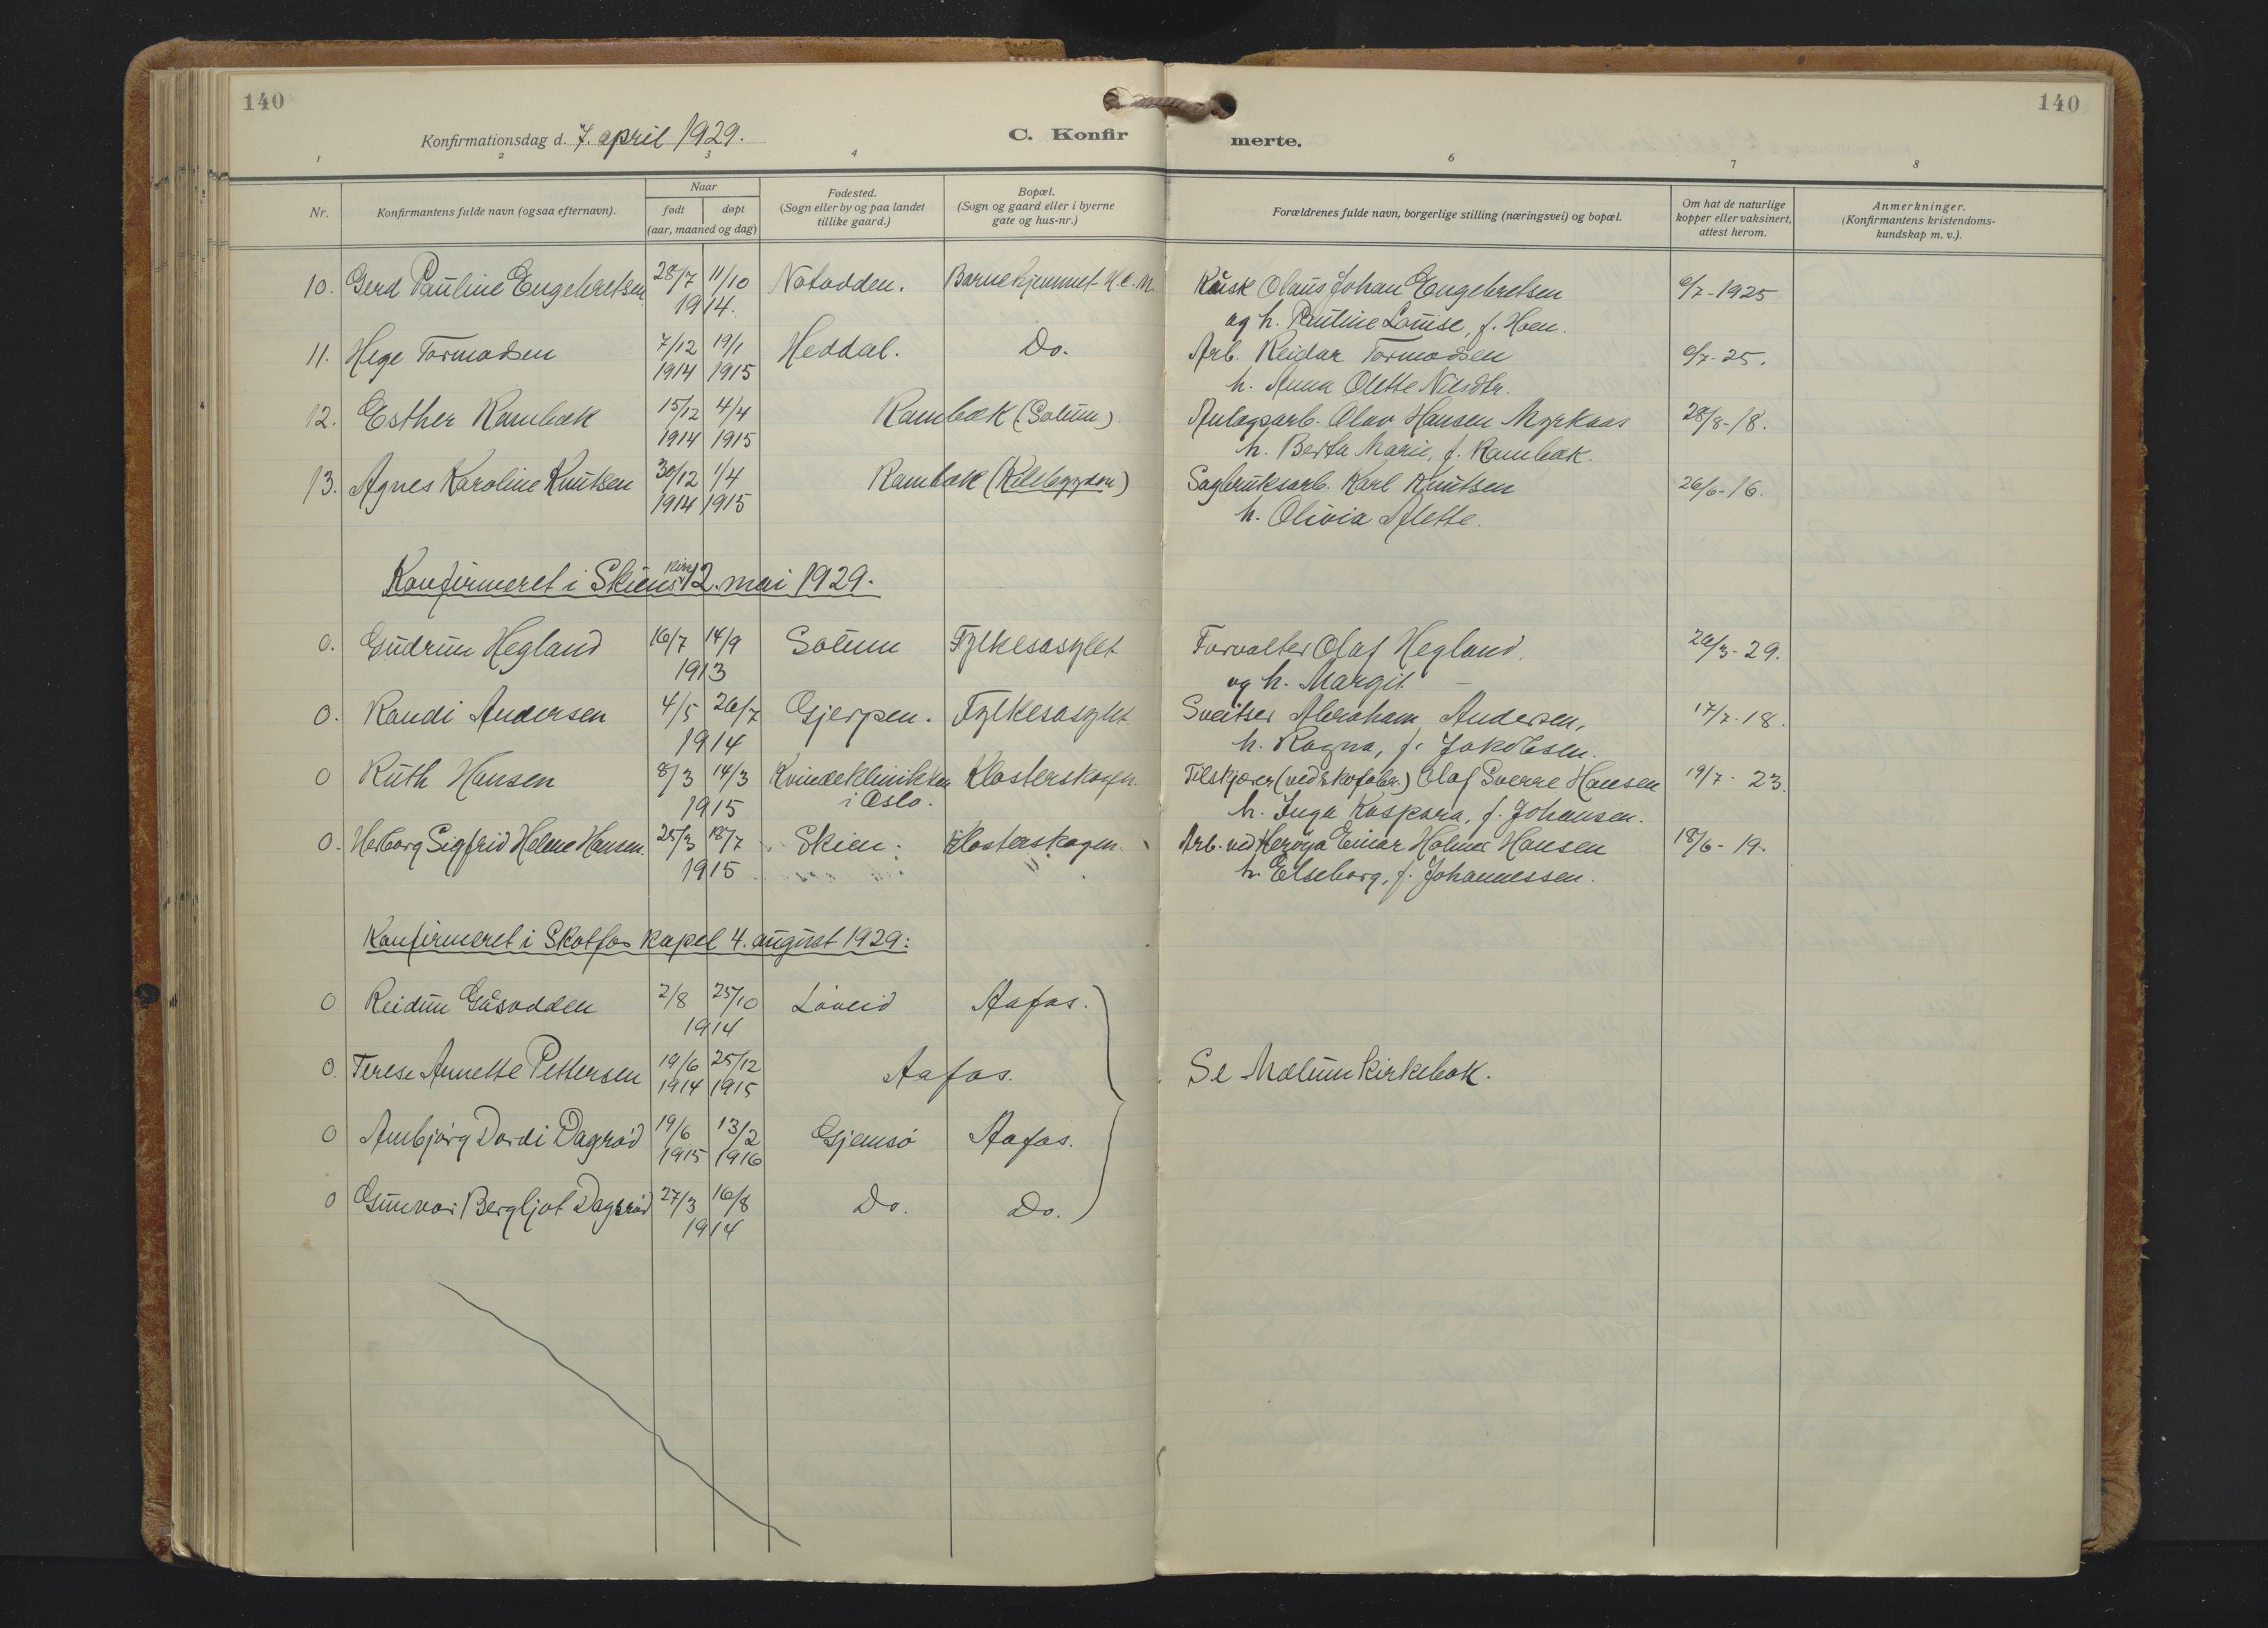 140
140
Konfirmationsdag d. 7. april 1929.
C. Konfir
merte.
1 2 3 4 6 7 8
Nr.
Konfirmantens fulde navn (ogsaa efternavn).
Naar
født døpt
(aar, maaned og dag)
Fødested.
(Sogn eller by og paa landet
tillike gaard.)
Bopæl.
(Sogn og gaard eller i byerne
gate og hus-nr.)
Forældrenes fulde navn, borgerlige stilling (næringsvei) og bopæl.
Om hat de naturlige
kopper eller vaksinert,
attest herom.
Anmerkninger.
(Konfirmantens kristendoms-
kundskap m. v.).
10. Gerd Pauline Engebretsen 28/7 11/10 Notodden. Barnehjemmet H.e.M. Kusk Olaus Johan Engebretsen 6/7-1925
1914. og h. Pauline Louise, f. Hoen.
11. Hege Tormodsen 7/12 19/1 Heddal. Do. Arb. Reidar Tormodsen 6/7-25.
1914 1915 h. Anna Olette Nilsdtr.
12. Esther Rambæk 15/12 4/4 Rambæk (Solum). Anlægsarb. Olav Hansen Myrkaas 28/8-18.
1914 1915 h. Berta Marie, f. Rambæk.
13. Agnes Karoline Knutsen 30/12 1/4 Rambæk (Kilebygden) Sagbruksarb. Karl Knutsen 26/6-16.
1914 1915 h. Olivia Alette.
Konfirmeret i Skiens kirke 12. mai 1929.
0. Gudrun Hegland 16/7 14/9 Solum Fylkesasylet Forvalter Olaf Hegland, 26/3-29.
1913 og h. Margit. —
0. Randi Andersen 4/5 26/7 Gjerpen. Fylkesasylet. Sveitser Abraham Andersen, 17/7-18.
1914 h. Ragna, f. Jakobsen.
0 Ruth Hansen 8/3 14/3 Kvindeklinikken Klosterskogen. Tilskjærer (ved skofabr.) Olaf Sverre Hansen 19/7-23.
1915 i Oslo. h. Inga Kaspara, f. Johansen.
0. Herborg Sigfrid Helene Hansen. 25/3 18/7 Skien. Klosterskogen. Arb. ved Herøya Einar Holmer Hansen 18/6-19.
1915 h. Elseborg, f. Johannessen.
Konfirmeret i Skotfos kapel 4. august 1929:
0 Reidun Gåsodden 2/8 25/10 Løveid Aafos.
1914
0. Terese Annette Pettersen 19/6 25/12 Aafos. Se Melum kirkebok.
1914 1915
0 Ambjørg Dordi Dagrød 19/6 13/2 Gjemsø Aafos.
1915 1916
0 Gunvor Bergljot Dagsrød 27/3 16/8 Do. Do.
1914